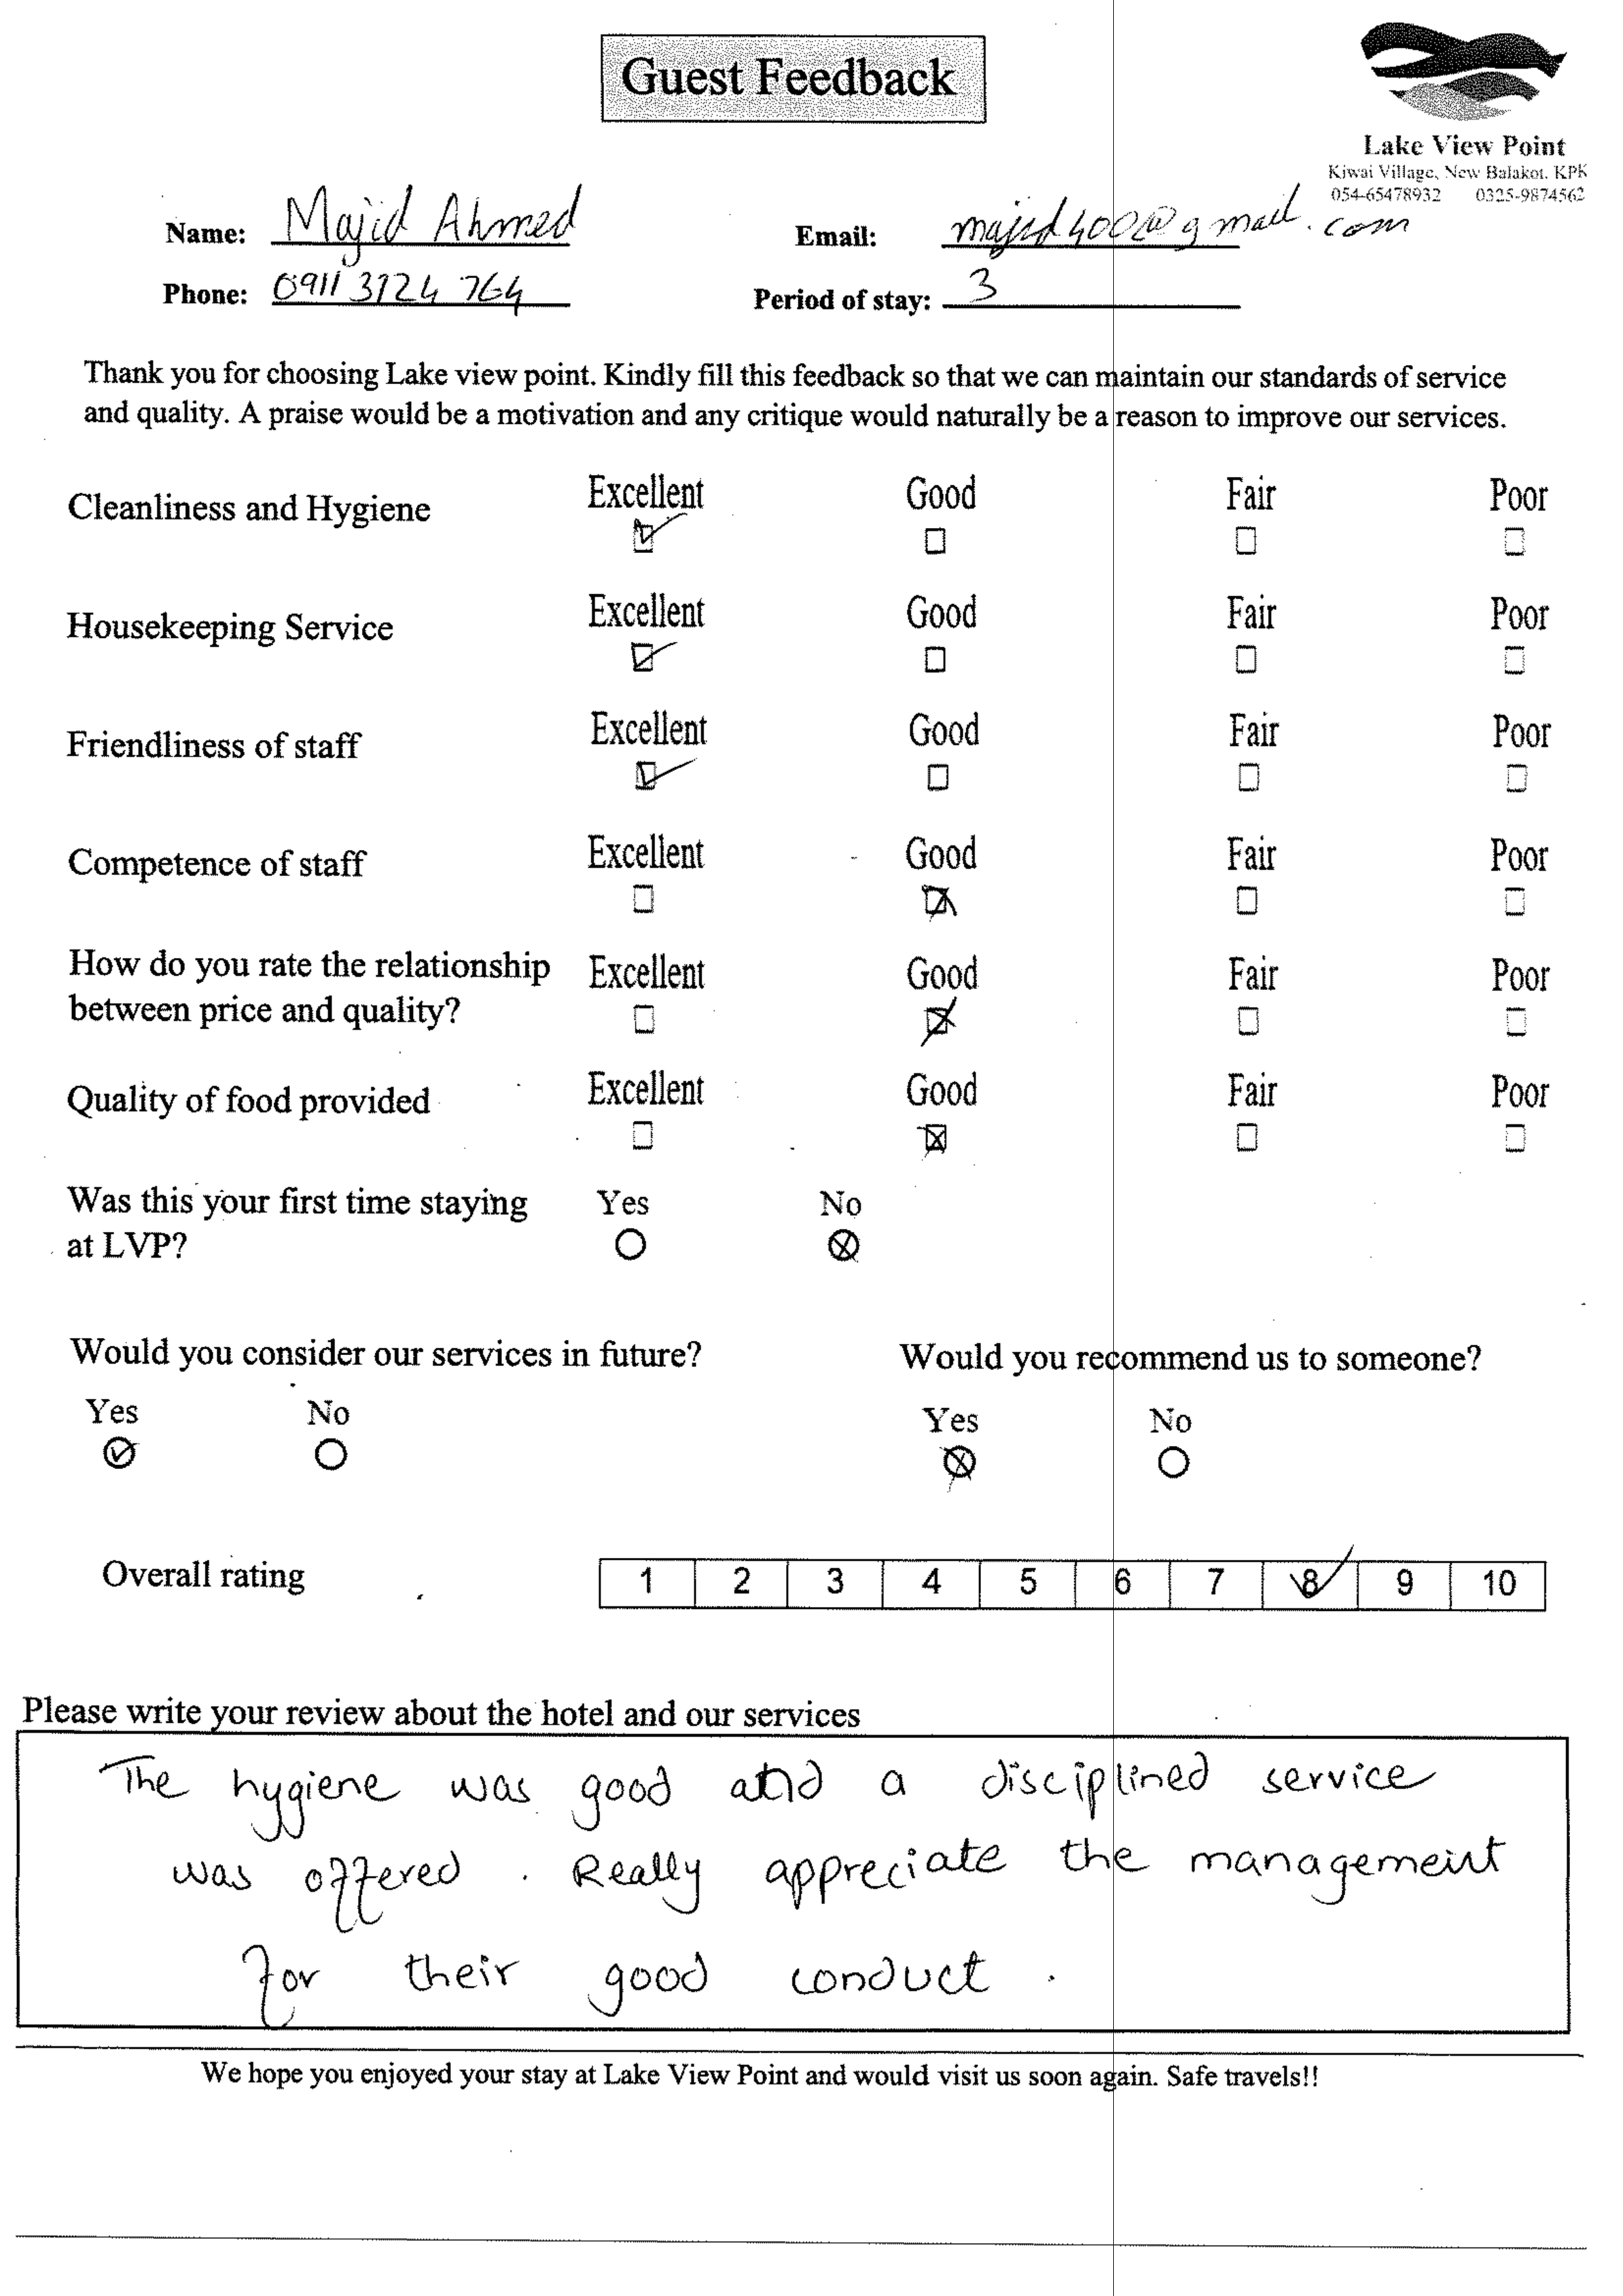 Guest Feedback
Lake View Point
Kiwai Village, New Balakot. KPK
054-65478932 0325-9874562
Name: Majid Ahmed Email: majid400@gmail.com
Phone: 0911 3124 764 Period of stay: 3
Thank you for choosing Lake view point. Kindly fill this feedback so that we can maintain our standards of service
and quality. A praise would be a motivation and any critique would naturally be a reason to improve our services.
Cleanliness and Hygiene Excellent Good Fair Poor
Housekeeping Service Excellent Good Fair Poor
Friendliness of staff Excellent Good Fair Poor
Competence of staff Excellent Good Fair Poor
How do you rate the relationship Excellent Good Fair Poor
between price and quality?
Quality of food provided Excellent Good Fair Poor
Was this your first time staying Yes No
at LVP?
Would you consider our services in future? Would you recommend us to someone?
Yes No Yes No
Overall rating 1 2 3 4 5 6 7 8 9 10
Please write your review about the hotel and our services
The hygiene was good and a disciplined service
was offered. Really appreciate the management
for their good conduct.
We hope you enjoyed your stay at Lake View Point and would visit us soon again. Safe travels!!